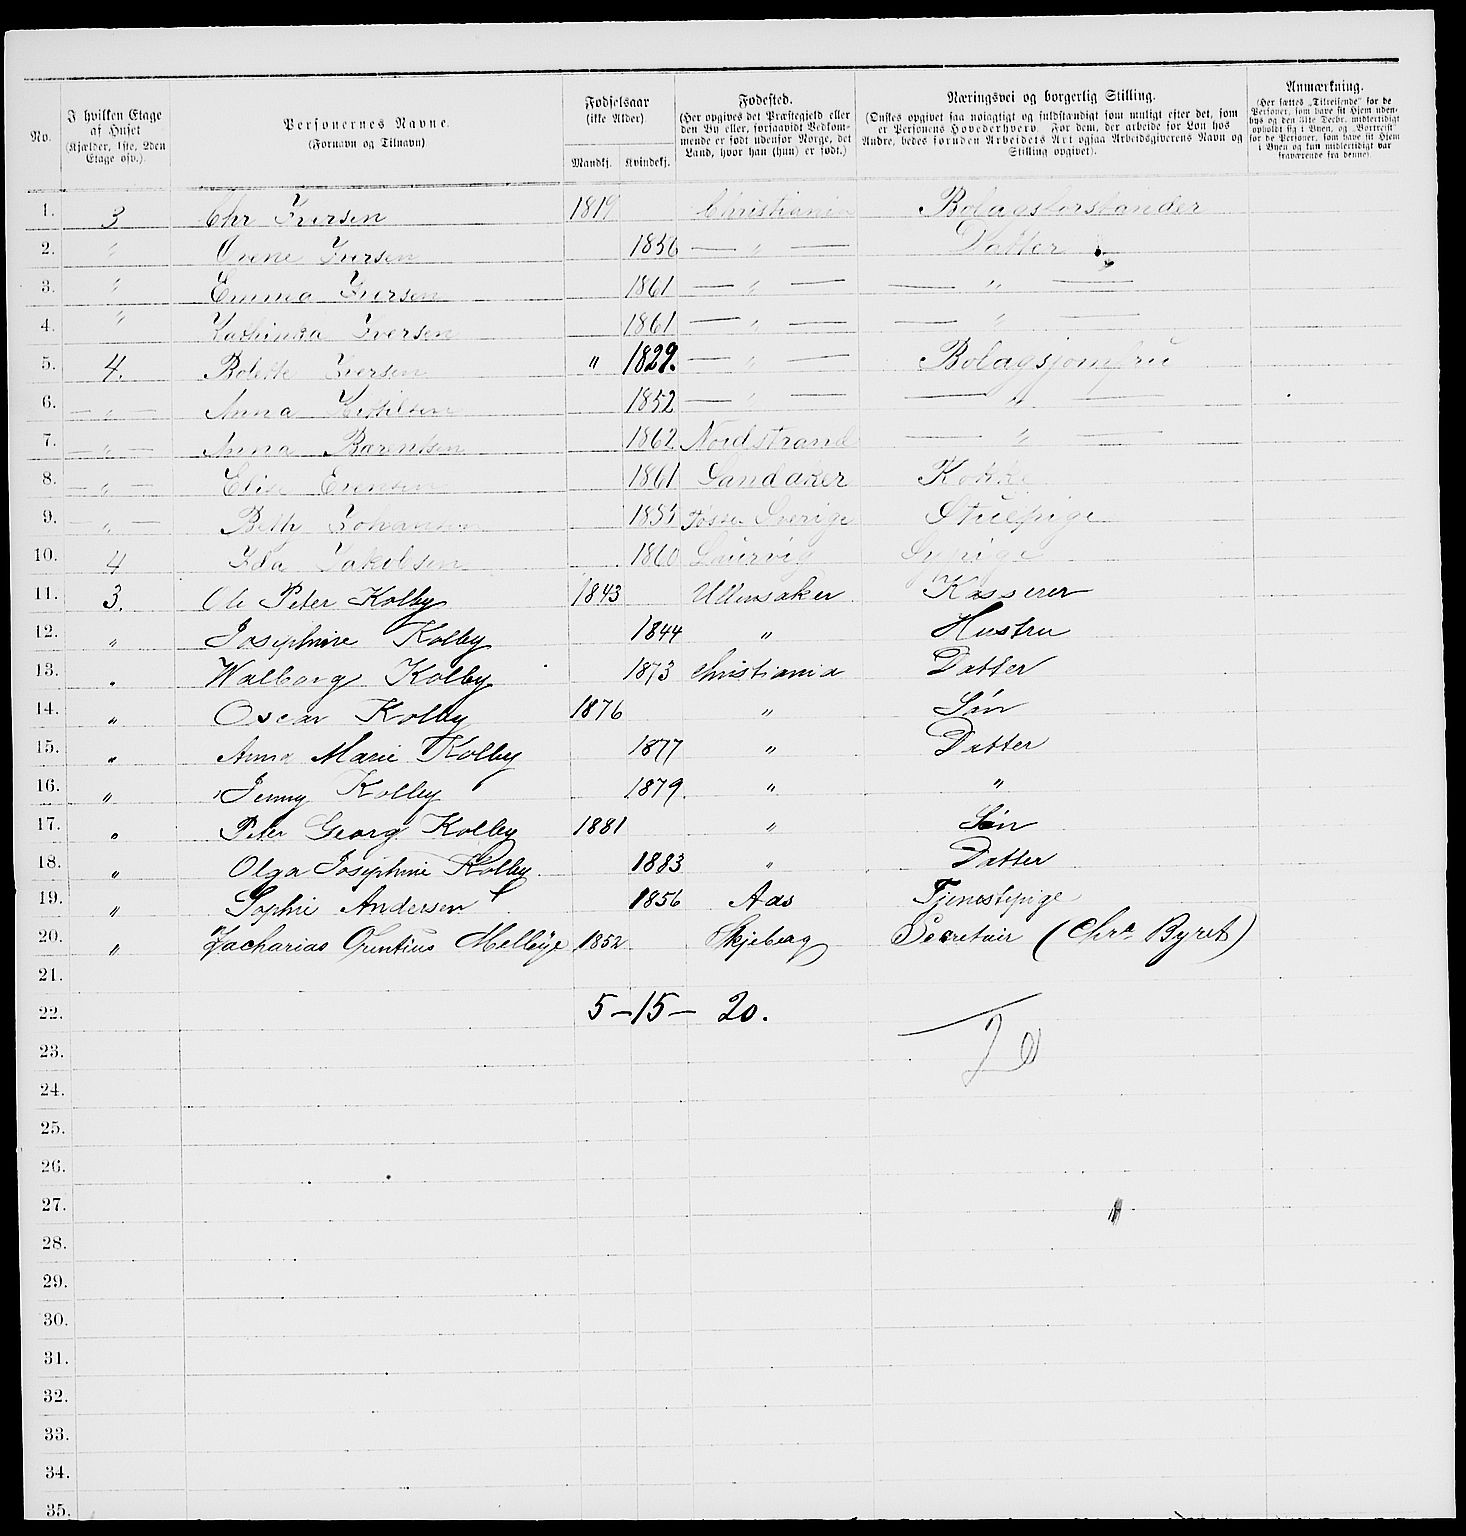 No. | I hvilken Etage af Huset (Kjælder, 1ste, 2den Etage osv.). | Personernes Navne. (Fornavn og Tilnavn) | Fødselsaar (ikke Alder) Mandkj. Kvindekj. | Fødested. (Her opgives det Præstegjeld eller den By eller, forsaavidt Vedkommende er født udenfor Norge, det Land, hvor han (hun) er født.) | Næringsvei og borgerlig Stilling. (Ønskes opgivet saa nøiagtigt og fuldstændigt som muligt efter det, som er Personens Hovederhverv. For dem, der arbeide for Løn hos Andre, bedes foruden Arbeidets Art ogsaa Arbeidsgiverens Navn og Stilling opgivet). | Anmærkning. (Her sættes „Tilreisende" for de Personer, som have sit Hjem udenbys og den 31te Decbr. midlertidigt opholdt sig i Byen, og „Bortreist" for de Personer, som have sit Hjem i Byen og kun midlertidigt var fraværende fra denne).
1. 3 Chr Iversen 1819 Christiania Bolagsforstander
2. " Iversen 1856 — " — Datter
3. " Emma Iversen 1861 — " — — " —
4. " Kathinka Iversen 1861 — " — — " —
5. 4. Bolette Iversen " 1829. — " — Bolagsjomfru
6. — " — Anna Kettilsen 1852 — " — — " —
7. — " — Anna Barentsen 1862 Nordstrand — " —
8. — " — Elise Evensen 1861 Sandaker Kokke
9. — " — Bethy Johansen 1853 Sverige Stuepige
10. 4 Ida Jakobsen 1860 Laurvig Sypige
11. 3. Ole Peter Kolby 1843 Ullensaker Kasserer
12. " Josephine Kolby 1844 " Hustru
13. " Walborg Kolby 1873 Christiania Datter
14. " Oscar Kolby 1876 " Søn
15. " Anna Marie Kolby 1877 " Datter
16. " Jenny Kolby 1879. " "
17. " Peter Georg Kolby 1881 " Søn
18. " Olga Josephine Kolby. 1883 " Datter
19. " Sophie Andersen 1856 Aas Tjenestepige
20. " Zacharias Melbye 1852 Skjeberg Secretair (Chra Byret)
21.
22. 5 — 15 — 20.
23. 20
24.
25.
26.
27.
28.
29.
30.
31.
32.
33.
34.
35.